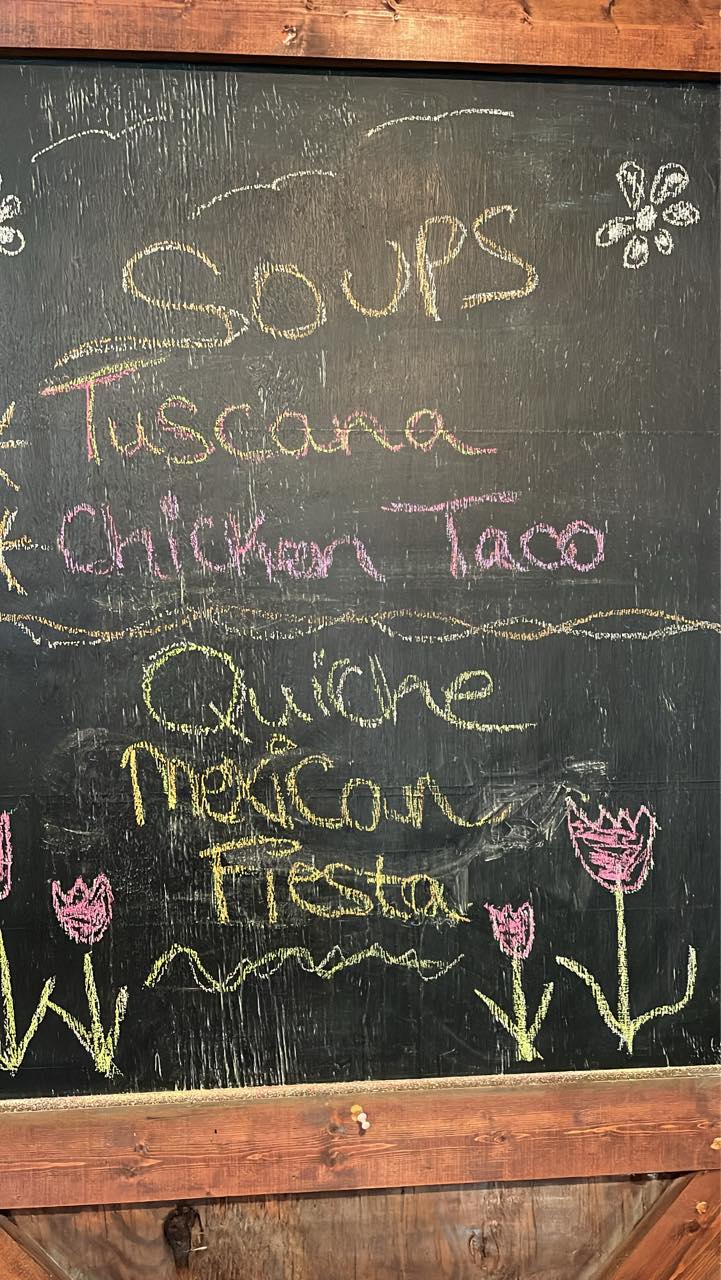 SOUPS
Tuscana
Chicken Taco
Quiche
Mexican
Fiesta